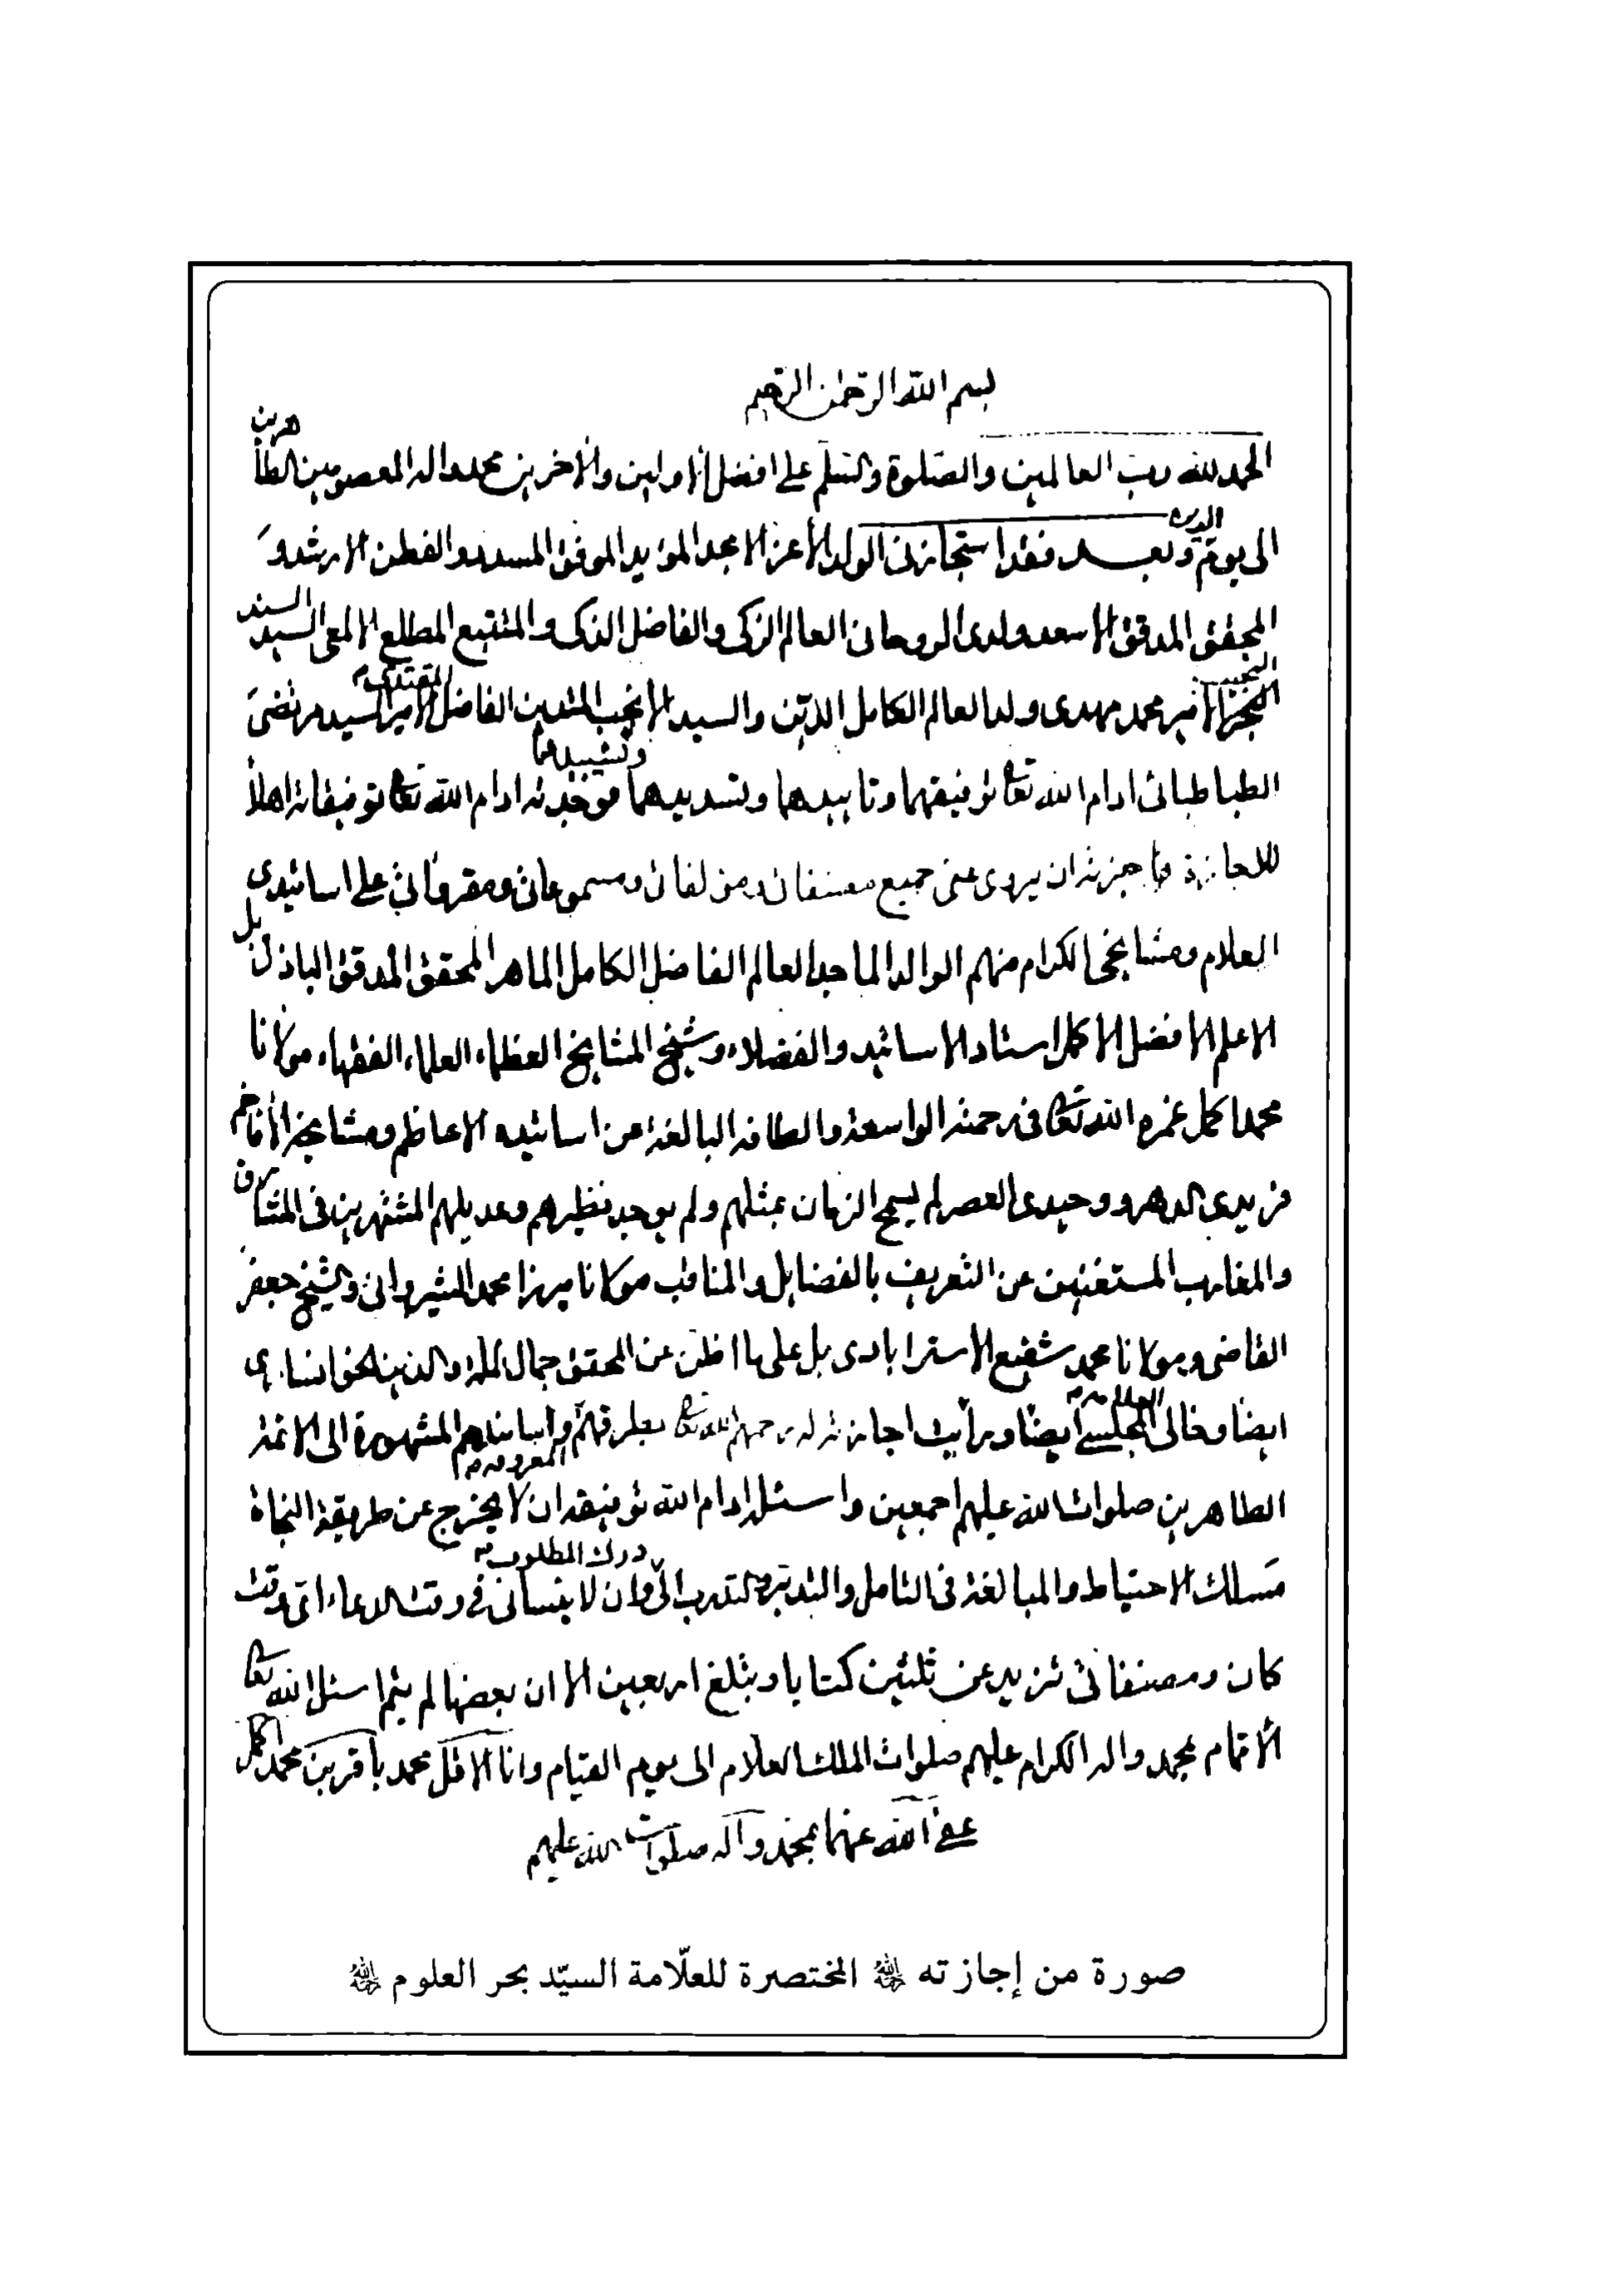 بسم الله الرحمن الرحيم
الحمد لله رب العالمين والصلوة والسلم على افضل الاولين والاخرين محمد واله المعصومين الطاهرين
الى يوم الدين وبعد فقد استجازنى الولد الأعز الامجد المؤيد الموفق المسدد والفطن الارشد و
المحقق المدقق الاسعد ولدى الروحانى العالم الزكى والفاضل الذكى والمتتبع المطلع الالمعى السيد السند
النجيب الامير محمد مهدى ولد العالم الكامل الدين والسيد الانجب المتدين الفاضل المقتدى الامير السيد مرتضى
الطباطبائى ادام الله تعالى توفيقهما وتاييدهما وتسديدهما وتشييدهما فوجدته ادام الله تعالى توفيقاته اهلا
للاجازة فاجزته ان يروى عنى جميع مصنفاتى ومسموعاتى ومقروأتى على اساتيدى
العلام ومشايخى الكرام منهم الوالد الماجد العالم الفاضل الكامل الماهر المحقق المدقق الباذل بل
الاعلم الافضل الاكمل استاد الاساتيد والفضلاء وشيخ المشايخ العظماء العلماء الفقهاء مولانا
محمد اكمل غمره الله تعالى فى رحمته الواسعة والطافه البالغة عن اساتيده الاعاظم ومشايخه الافاخم
فريدى الدهر و وحيدى العصر لم يسمح الزمان بمثلهم ولم يوجد نظيرهم وعديلهم المشتهرين فى المشارق
والمغارب المستغنين عن التعريف بالفضايل والمناقب مولانا ميرزا محمد الشيروانى والشيخ جعفر
القاضى ومولانا محمد شفيع الاسترابادى بل على ما اظن عن المحقق جمال الملة والدين الخوانسارى
ايضا وخالى العلامة المجلسى ايضا ورأيت اجازته له رحمهم الله تعالى بطرقهم واسانيدهم المعروفة المشهورة الى الائمة
الطاهرين صلوات الله عليهم اجمعين واسئله ادام الله توفيقه ان لا يخرج عن طريقة النجاة
مسلك الاحتياط والمبالغة فى التامل والتدبر والتدرب الى درك المطلوب وان لا ينسانى فى وقت الدعاء اى وقت
كان ومصنفاتى تزيد عن ثلثين كتابا و يبلغ اربعين الا ان بعضها لم يتم اسئل الله تعالى
الاتمام بمحمد واله الكرام عليهم صلوات الملك العلام الى يوم القيام وانا الاقل محمد باقر بن محمد اكمل
عفى الله عنهما بمحمد وآله صلوات الله عليهم
صورة من إجازته ﷲ المختصرة للعلّامة السيّد بحر العلوم ﷲ